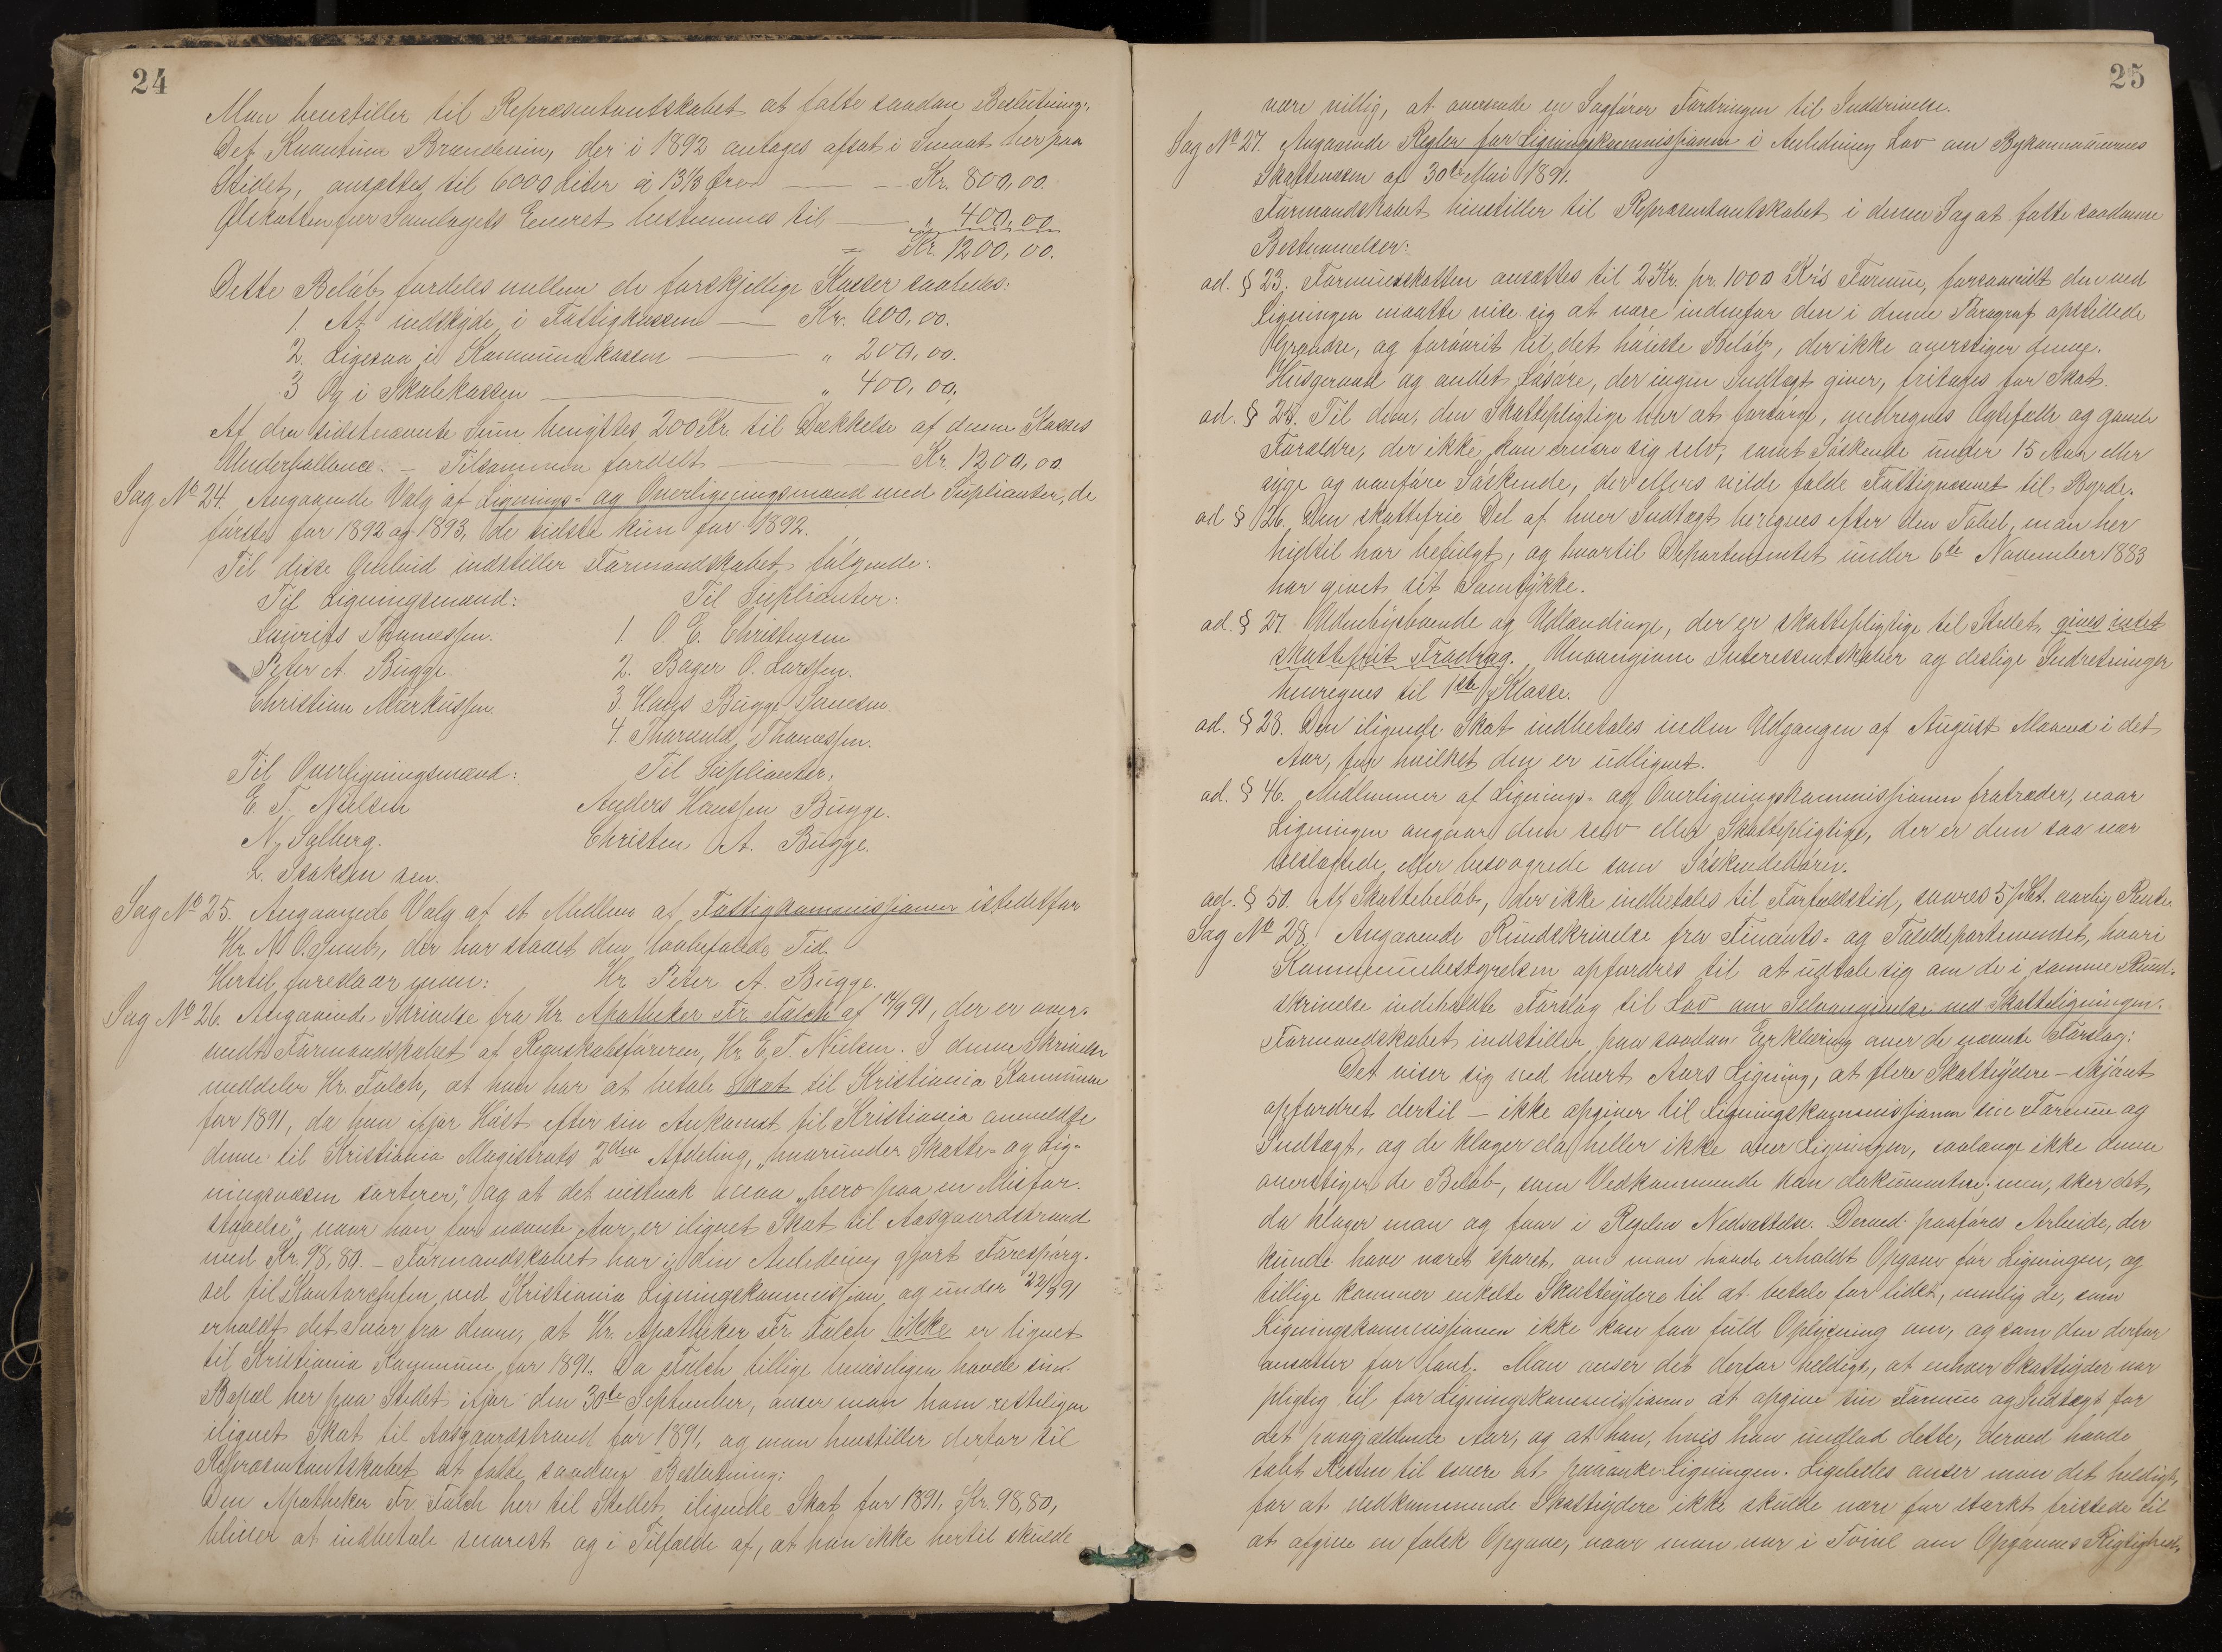 24
Man henstiller til Repræsentantskabet at fatte saadan Beslutning:
Det Kvantum Brændevin, der i 1892 antages afsat i Smaat her paa
Stedet, ansættes til 6000 Liter à 13⅓ Øre — Kr. 800,00.
Afskatten for Samlagets Eneret bestemmes til — " 400,00
= Kr. 1200,00.
Dette Beløb fordeles mellem de forskjellige Kasser saaledes:
1. At indskyde i Fattigkassen — Kr. 600,00.
2. Ligesaa i Kommunekassen — " 200,00.
3 Og i Skolekassen — " 400,00.
Af den sidstnævnte Sum benyttes 200 Kr. til Dækkelse af denne Kasses
Underballance. – Tilsammen fordelt — Kr. 1200,00.
Sag No 24. Angaaende Valg af Lignings- og Overligningsmænd med Suplianter, de
første for 1892 og 1893, de sidste kun for 1892.
Til disse Ombud indstiller Formandskabet følgende:
Til Ligningsmænd: Til Suplianter:
Laurits Thomessen. 1. O. E. Christensen
Peter A. Bugge. 2. Bager O. Larssen.
Christian Markussen. 3. Hans Bugge Jansen.
4. Thorvald Thomessen.
Til Overligningsmænd: Til Suplianter:
E. T. Nielsen Anders Hanssen Bugge.
N. Solberg. Christen A. Bugge.
L. Isaksen sen.
Sag No 25. Angaaende Valg af et Medlem af Fattigkommissionen istedetfor
Hr. N. O. Lund, der har staaet den lovbefalede Tid.
Hertil foreslaar man: Hr. Peter A. Bugge.
Sag No 26. Angaaende Skrivelse fra Hr. Apotheker Fr. Falch af 14/9 91, der er over-
sendt Formandskabet af Regnskabsføreren, Hr. E. T. Nielsen. I denne Skrivelse
meddeler Hr. Falch, at han har at betale Skat til Kristiania Kommune
for 1891, da han ifjor Høst efter sin Ankomst til Kristiania anmeldte
denne til Kristiania Magistrats 2den Afdeling, "hvorunder Skatte- og Lig-
ningsvæsen sorterer", og at det vistnok maa "bero paa en Misfor-
staaelse", naar han for nævnte Aar er ilignet Skat til Aasgaardstrand
med Kr. 98,80. – Formandskabet har i den Anledning gjort Forespørg-
sel til Kontorchefen ved Kristiania Ligningskommission, og under 22/9 91
erholdt det Svar fra denne, at Hr. Apotheker Fr. Falch ikke er lignet
til Kristiania Kommune for 1891. Da Falch tillige beviseligen havde sin
Bopæl her paa Stedet ifjor den 30te September, anser man ham retteligen
ilignet Skat til Aasgaardstrand for 1891, og man henstiller derfor til
Repræsentantskabet at fatte saadan Beslutning:
Den Apotheker Fr. Falch her til Stedet ilignede Skat for 1891, Kr. 98,80,
bliver at indbetale snarest og i Tilfælde af, at han ikke hertil skulde
25
være villig, at oversende en Sagfører Fordringen til Inddrivelse.
Sag No 27. Angaaende Regler for Ligningskommissionen i Anledning Lov om Bykommunernes
Skattevæsen af 30te Mai 1891.
Formandskabet henstiller til Repræsentantskabet i denne Sag at fatte saadanne
Bestemmelser:
ad. § 23. Formuesskatten ansættes til 2 Kr. pr. 1000 Kr's Formue, forsaavidt den ved
Ligningen maatte vise sig at være indenfor den i denne Paragraf opstillede
Grændse, og forøvrigt til det høieste Beløb, der ikke overstiger denne.
Husgeraad og andet Løsøre, der ingen Indtægt giver, fritages for Skat.
ad. § 25. Til dem, den Skattepligtige har at forsørge, medregnes Ægtefælle og gamle
Forældre, der ikke kan ernære sig selv, samt Søskende under 15 Aar eller
syge og vanføre Søskende, der ellers vilde falde Fattigvæsenet til Byrde.
ad § 26. Den skattefrie Del af hver Indtægt beregnes efter den Tabel, man her
hidtil har befulgt, og hvortil Departementet under 6te November 1883
har givet sit Samtykke.
ad. § 27. Udenbysboende og Udlændinge, der er skattepligtige til Stedet, gives intet
skattefrit Fradrag. Unavngivne Interessentskaber og deslige Indretninger
henregnes til 1ste Klasse.
ad. § 28. Den ilignede Skat indbetales inden Udgangen af August Maaned i det
Aar, for hvilket den er udlignet.
ad. § 46. Medlemmer af Lignings- og Overligningskommissionen fratræder, naar
Ligningen angaar dem selv eller Skattepligtige, der er dem saa nær
beslægtede eller besvogrede som Søskendebørn.
ad. § 50. Af Skattebeløb, der ikke indbetales til Forfaldstid, svares 5 pCt. aarlig Rente.
Sag No 28. Angaaende Rundskrivelse fra Finants- og Tolddepartementet, hvori
Kommunebestyrelsen opfordres til at udtale sig om de i samme Rund-
skrivelse indeholdte Forslag til Lov om Selvangivelse ved Skatteligningen.
Formandskabet indstiller paa saadan Erklæring over de nævnte Forslag:
Det viser sig ved hvert Aars Ligning, at flere Skatteydere – skjønt
opfordret dertil – ikke opgiver til Ligningskommissionen sin Formue og
Indtægt, og de klager da heller ikke over Ligningen, saalænge ikke denne
overstiger de Beløb, som Vedkommende kan dokumentere; men, sker det,
da klager man og faar i Regelen Nedsættelse. Derved paaføres Arbeide, der
kunde have været sparet, om man havde erholdt Opgave før Ligningen, og
tillige kommer enkelte Skatteydere til at betale for lidet, nemlig de, som
Ligningskommissionen ikke kan faa fuld Oplysning om, og som den derfor
ansætter for lavt. Man anser det derfor heldigt, at enhver Skatteyder var
pligtig til for Ligningskommissionen at opgive sin Formue og Indtægt for
det paagjældende Aar, og at han, hvis han undlod dette, derved havde
tabt Retten til senere at paaanke Ligningen. Ligeledes anser man det heldigt,
for at vedkommende Skatteydere ikke skulde være for stærkt fristede til
at afgive en falsk Opgave, naar man var i Tvivl om Opgavens Rigtighed,